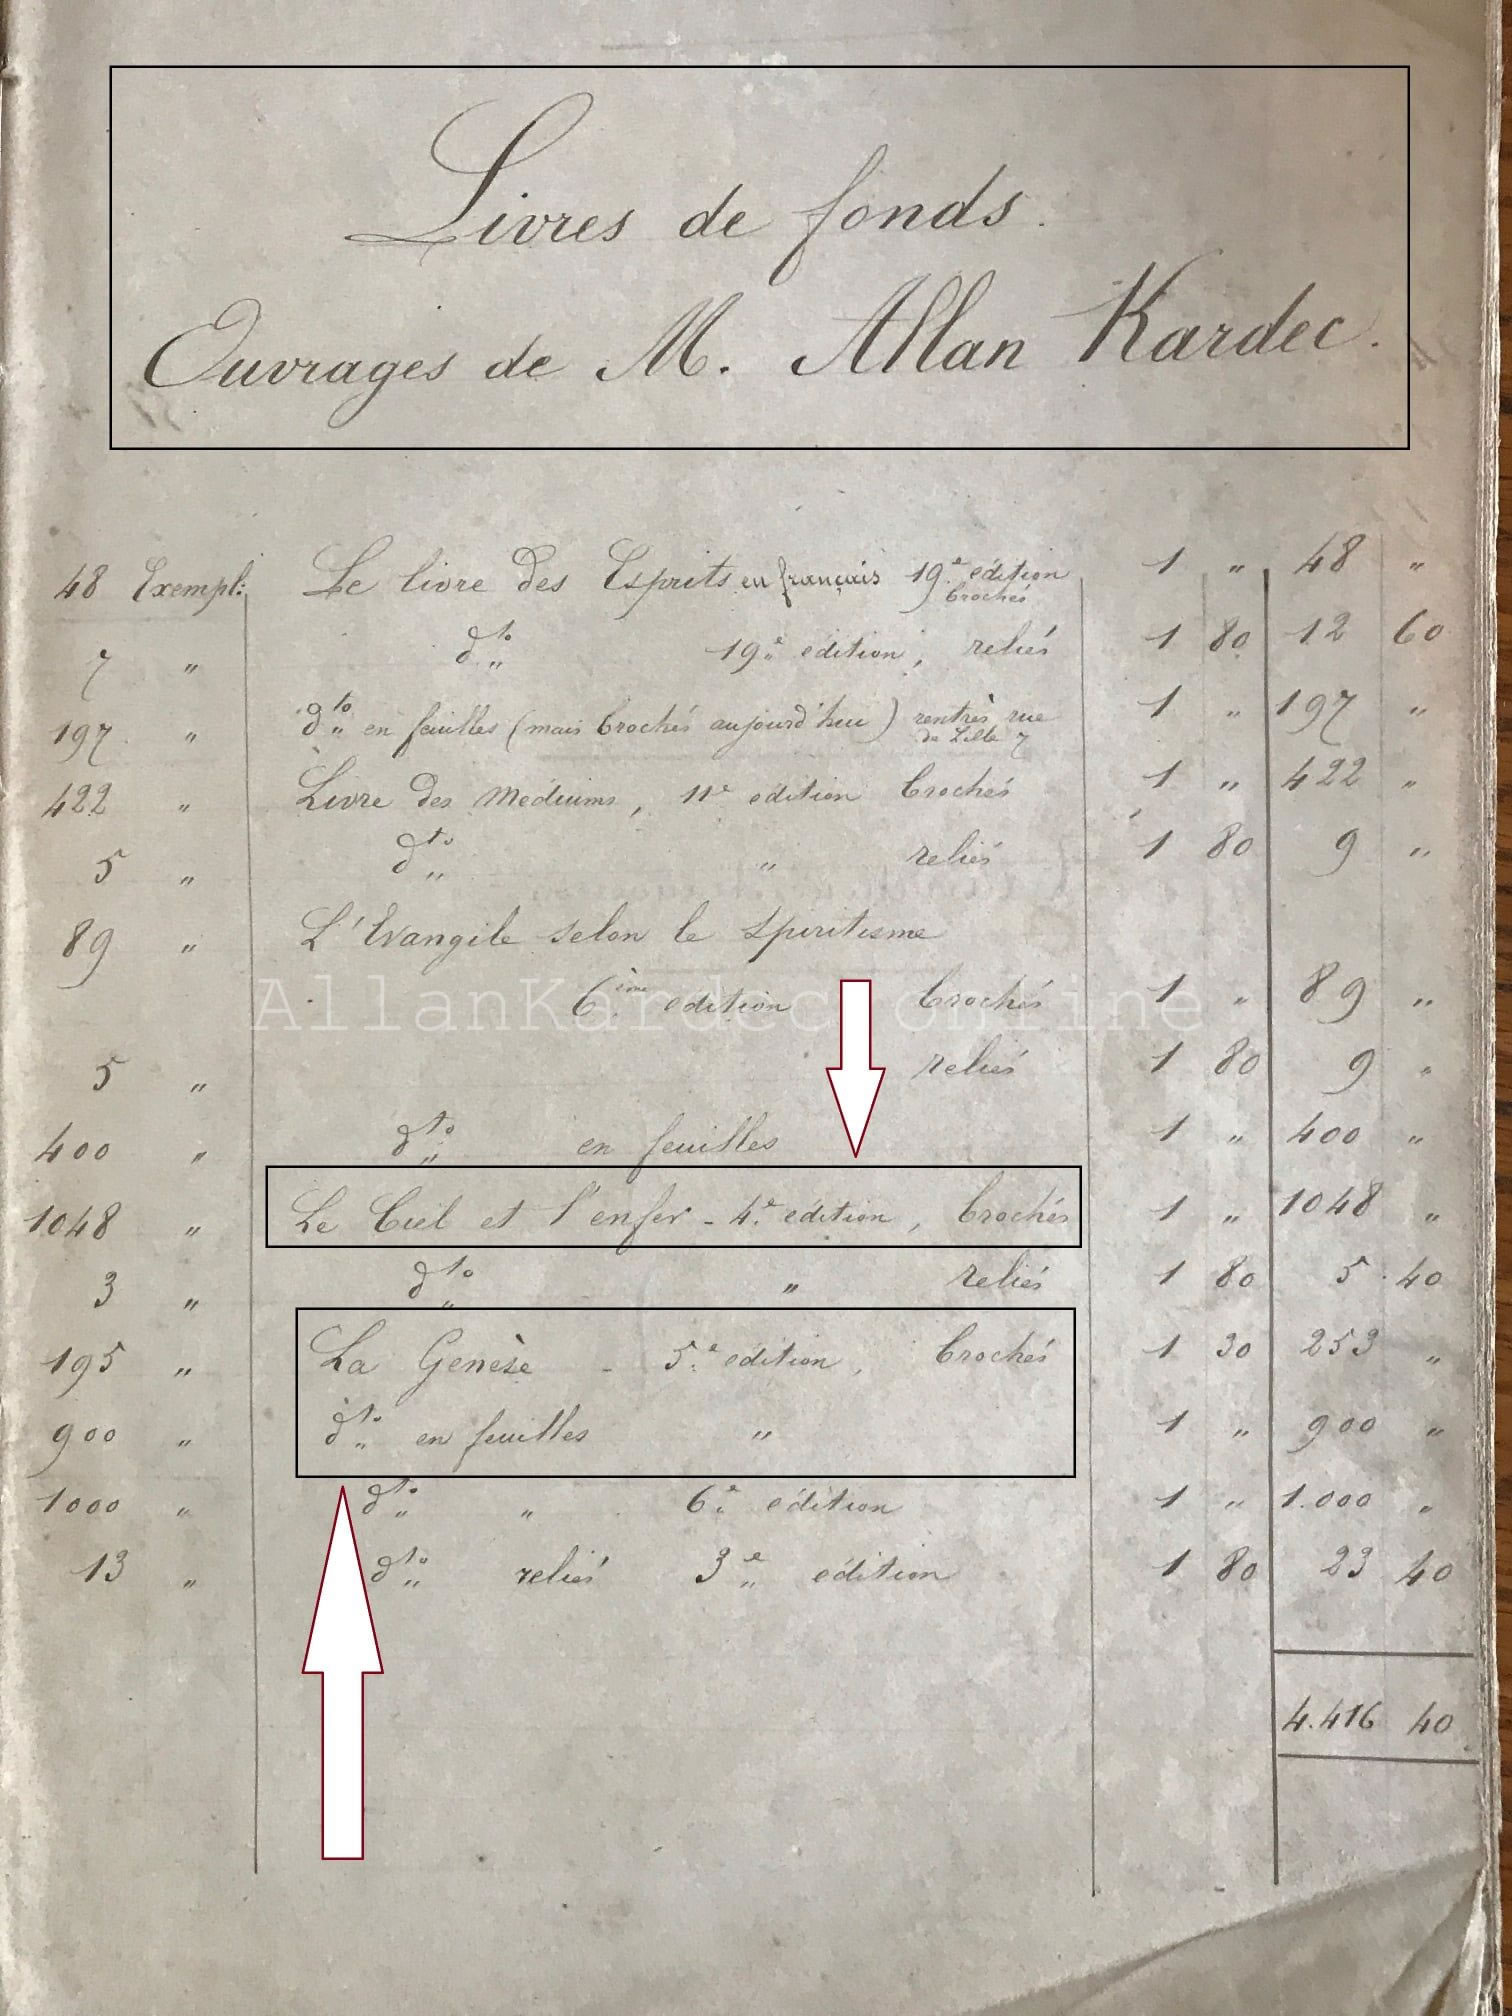 Livres de fonds.
Ouvrages de M. Allan Kardec.
48 Exempl: Le livre des Esprits en français 19.e édition brochés 1 " 48 "
7 " dto 19.e édition, reliés 1 80 12 60
197 " dto en feuilles (mais brochés aujourd'hui) rentrés rue de Lille 7 1 " 197 "
422 " Livre des Médiums, 11e édition brochés 1 " 422 "
5 " dto " reliés 1 80 9 "
89 " L'Evangile selon le Spiritisme
6ème édition brochés 1 " 89 "
AllanKardec.online
5 " reliés 1 80 9 "
400 " dto en feuilles 1 " 400 "
1048 " Le Ciel et l'enfer - 4.e édition, brochés 1 " 1048 "
3 " dto " reliés 1 80 5 40
195 " La Genèse - 5.e édition, brochés 1 30 253 "
900 " dto en feuilles " 1 " 900 "
1000 " dto " 6.e édition 1 " 1.000 "
13 " dto reliés 3e édition 1 80 23 40
4.416 40